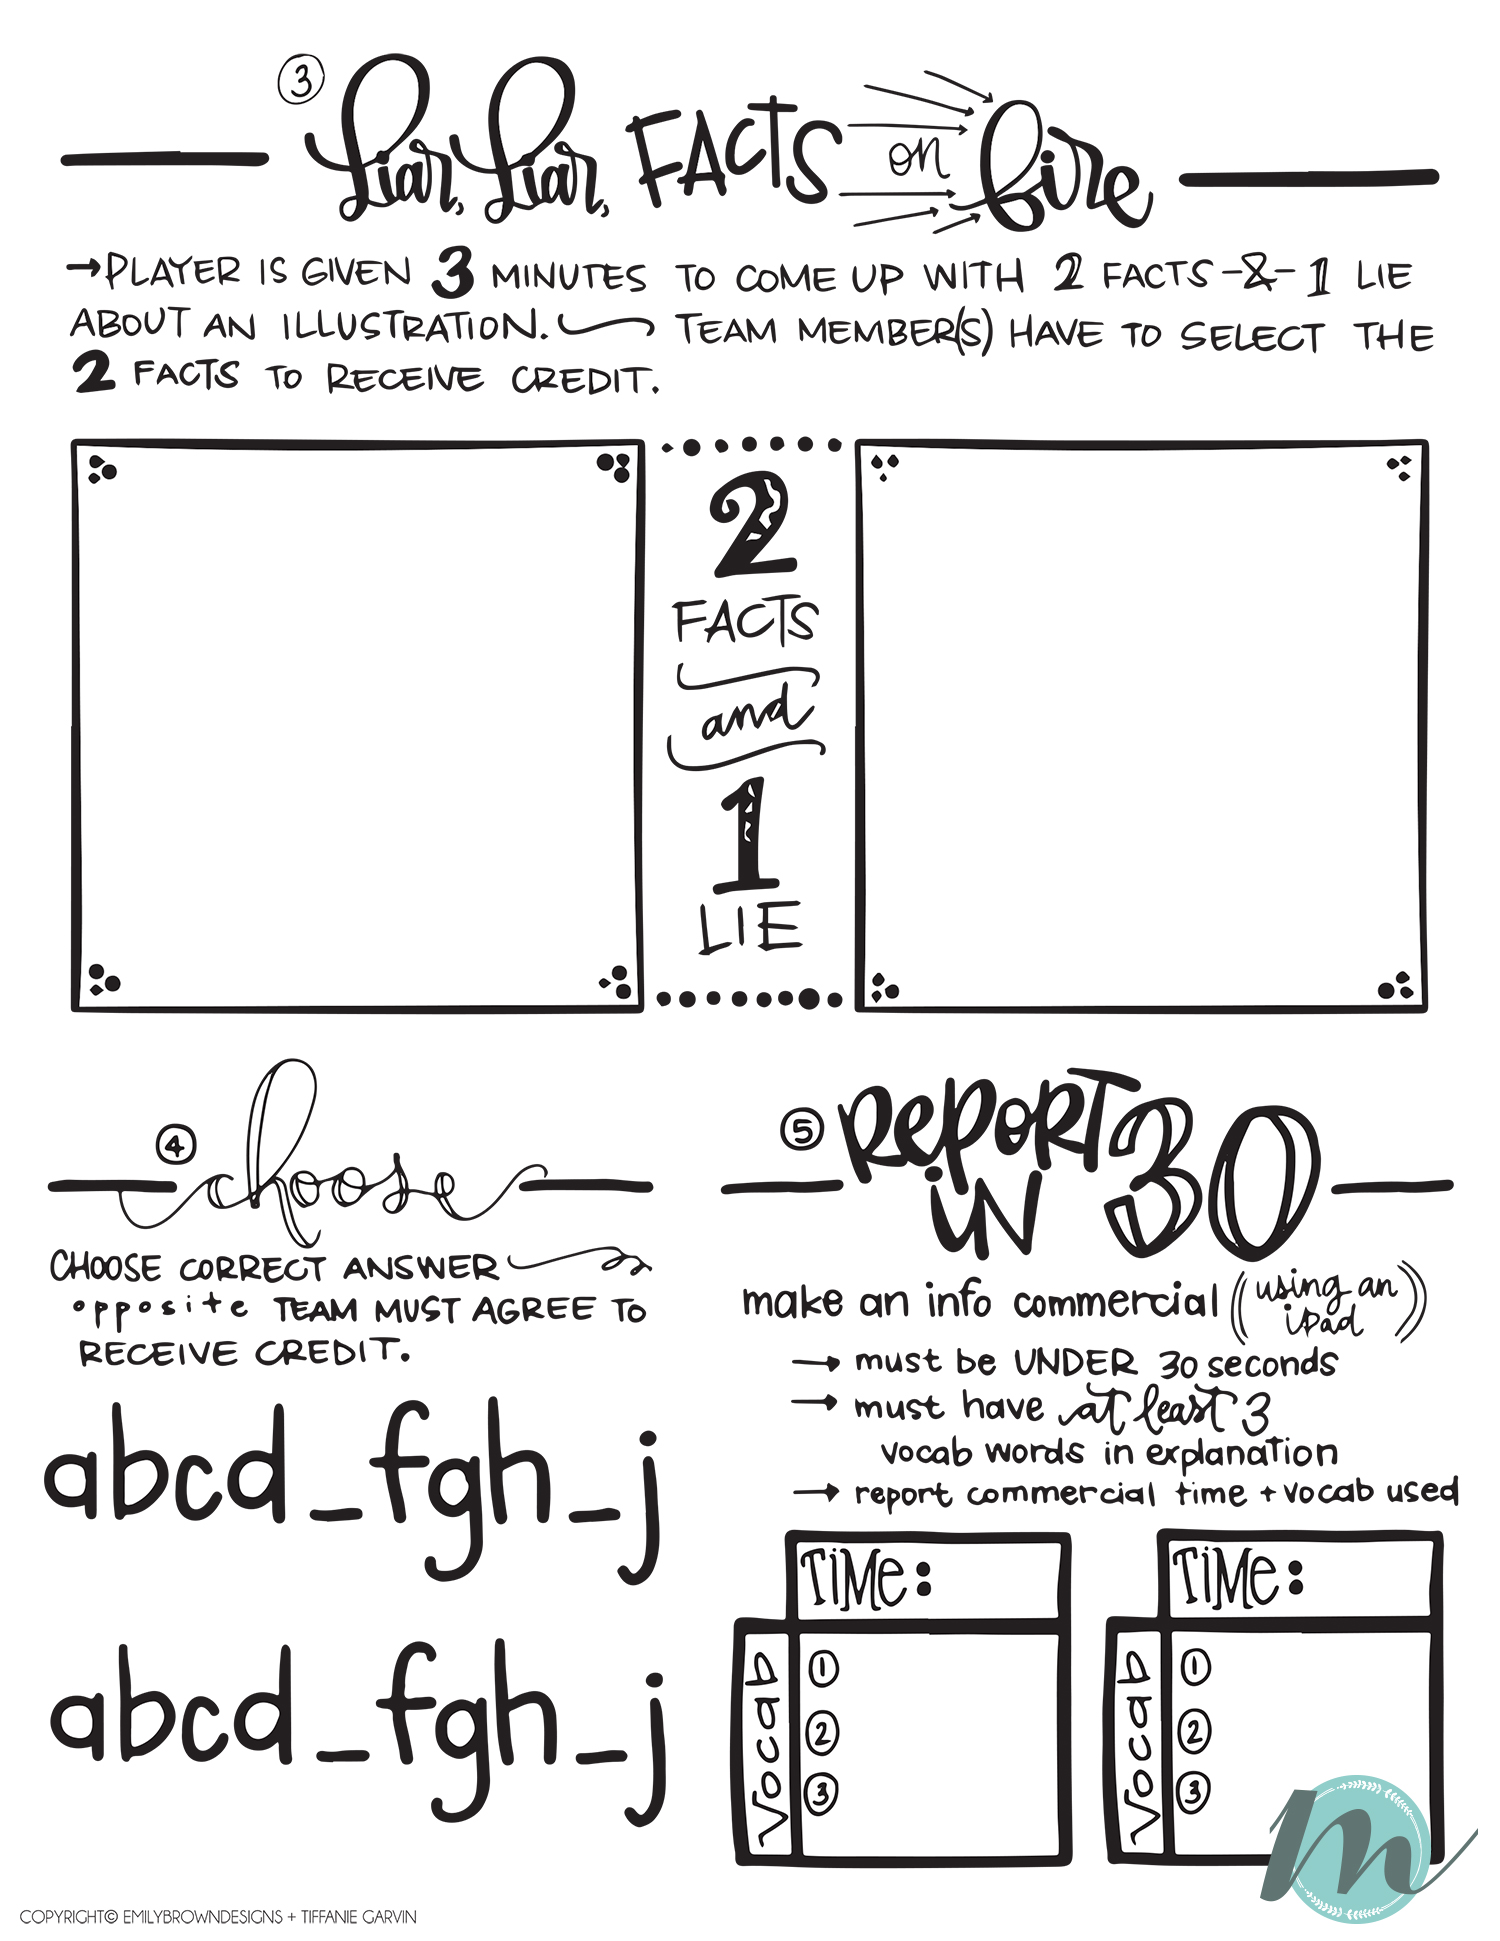 3 Liar, Liar, FACTS on fire
→PLAYER IS GIVEN 3 MINUTES TO COME UP WITH 2 FACTS -&- 1 LIE
ABOUT AN ILLUSTRATION. TEAM MEMBER(S) HAVE TO SELECT THE
2 FACTS TO RECEIVE CREDIT.
2
FACTS
and
1
LIE
4 choose
CHOOSE CORRECT ANSWER
opposite TEAM MUST AGREE TO
RECEIVE CREDIT.
abcd_fgh_j
abcd_fgh_j
5 REPORT
IN 30
make an info commercial ((using an
iPad))
→ must be UNDER 30 seconds
→ must have at least 3
vocab words in explanation
→ report commercial time + vocab used
TIME:
Vocab
1
2
3
TIME:
Vocab
1
2
3
m
COPYRIGHT© EMILYBROWNDESIGNS + TIFFANIE GARVIN